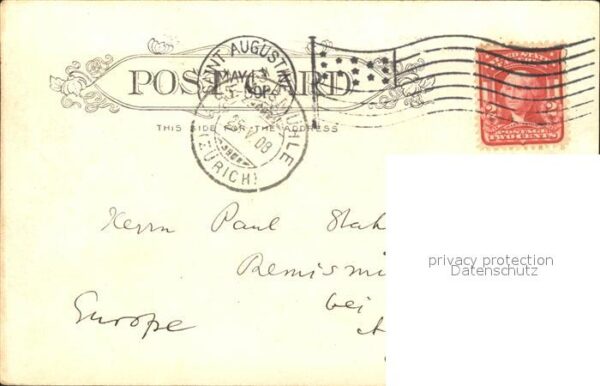 POST CARD
THIS SIDE FOR THE ADDRESS
SAINT AUGUSTINE
MAY
MÜHLE
(ZÜRICH)
POSTAGE
TWO CENTS
Herrn Paul Stah
Remismü
bei
Europe
privacy protection
Datenschutz